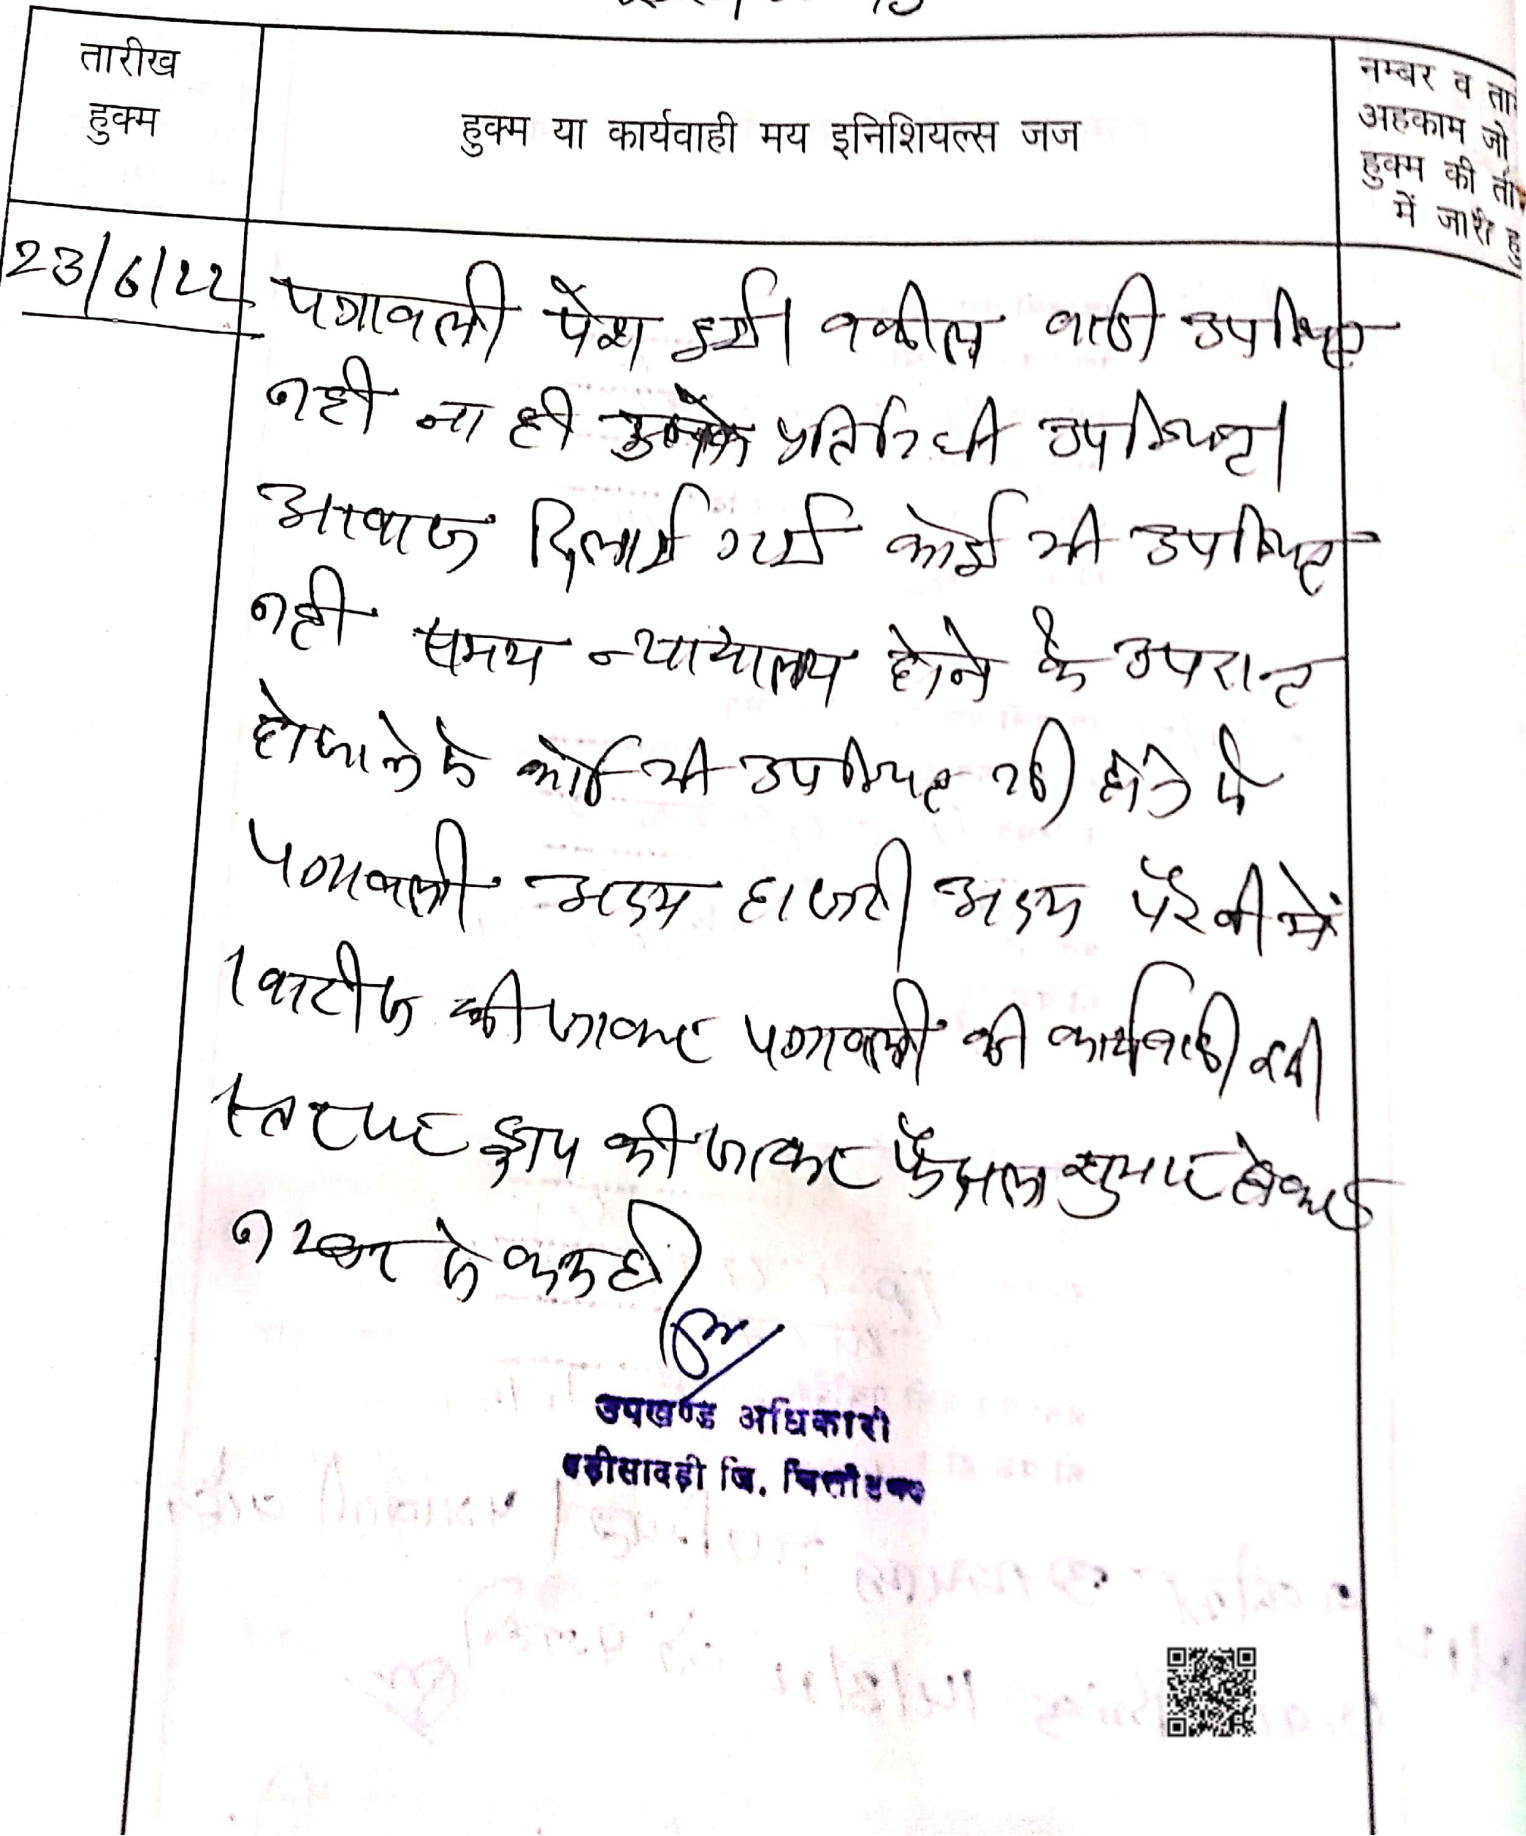 तारीख
हुक्म
हुक्म या कार्यवाही मय इनिशियल्स जज
नम्बर व ता
अहकाम जो
हुक्म की ता
में जारी हु
23/6/22
पत्रावली पेश हुई। वकील वादी उपस्थित
नही ना ही उनके प्रतिनिधी उपस्थित।
आवाज दिलाई गई कोई भी उपस्थित
नही समय न्यायालय होने के उपरान्त
होजाने के कोई भी उपस्थित नही होने से
पत्रावली अदम हाजरी अदम पैरवी में
खारीज की जाकर पत्रावली की कार्यवाही इसी
स्तर पर ड्रॉप की जाकर फैसला सुमार होकर
नम्बर से कम हो
उपखण्ड अधिकारी
बड़ीसादड़ी जि. चित्तौड़गढ़